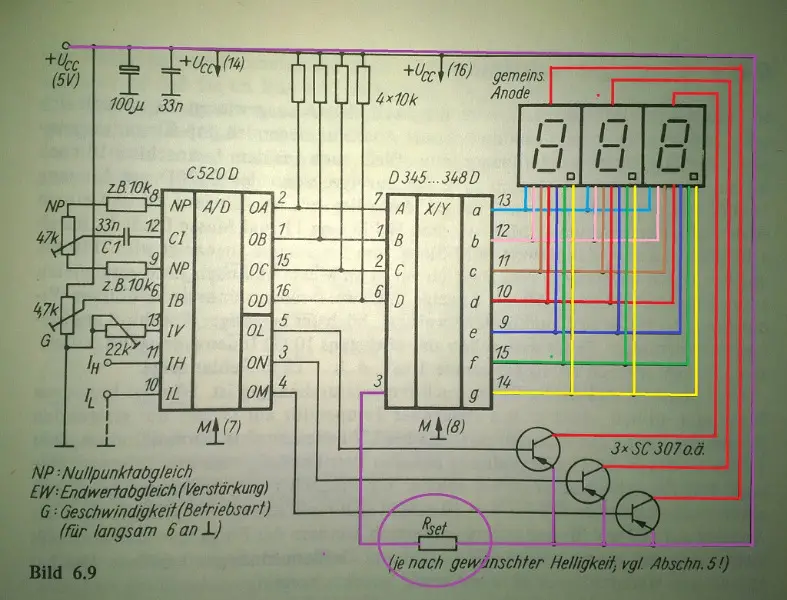 +UCC
(5V)
+UCC (14)
+UCC (16)
gemeins.
Anode
100µ
33n
4×10k
8 8 8
C520D
D345...348D
z.B.10k
NP
47k
33n
C1
z.B.10k
4,7k
G
22k
IH
IL
8 NP A/D OA 2
12 CI OB 1
9 NP OC 15
6 IB OD 16
13 IV OL 5
11 IH ON 3
10 IL OM 4
M (7)
7 A X/Y a 13
1 B b 12
2 C c 11
6 D d 10
e 9
f 15
3 g 14
M (8)
3×SC 307 o.ä.
NP: Nullpunktabgleich
EW: Endwertabgleich (Verstärkung)
G: Geschwindigkeit (Betriebsart)
(für langsam 6 an ⊥)
Rset
(je nach gewünschter Helligkeit, vgl. Abschn. 5!)
Bild 6.9